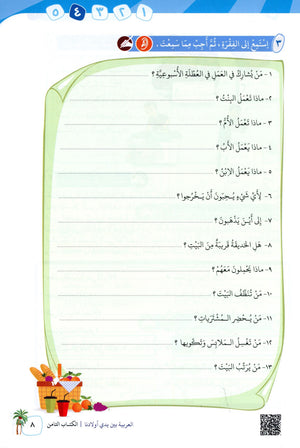 ١ ٢ ٣ ٤ ٥
٣ اِسْتَمِعْ إِلَى الفِقْرَةِ، ثُمَّ أَجِبْ مِمَّا سَمِعْتَ.
١- مَنْ يُشارِكُ في العَمَلِ في العُطْلَةِ الأُسْبوعِيَّةِ؟
٢- ماذا تَعْمَلُ البِنْتُ؟
٣- ماذا تَعْمَلُ الأُمُّ؟
٤- ماذا يَعْمَلُ الأَبُ؟
٥- ماذا يَعْمَلُ الاِبْنُ؟
٦- لِأَيِّ شَيْءٍ يُحِبّونَ أَنْ يَخْرُجوا؟
٧- إِلى أَيْنَ يَذْهَبونَ؟
٨- هَلِ الحَديقَةُ قَريبَةٌ مِنَ البَيْتِ؟
٩- ماذا يَحْمِلونَ مَعَهُمْ؟
١٠- مَنْ تُنَظِّفُ البَيْتَ؟
١١- مَنْ يُحْضِرُ المُشْتَرَياتِ؟
١٢- مَنْ تَغْسِلُ المَلابِسَ وَتَكْويها؟
١٣- مَنْ يُرَتِّبُ البَيْتَ؟
٨ العربية بين يدي أولادنا | الكتاب الثامن